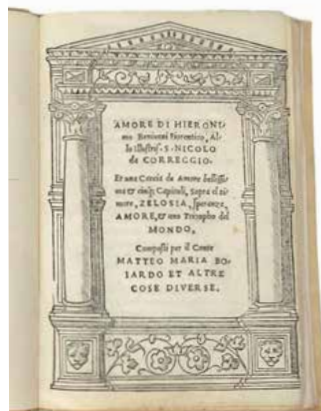 AMORE DI HIERONI
mo Beniuieni Fiorentino, Al
lo Illustris. S. NICOLO
da CORREGGIO.
Et una Caccia de Amore bellissi
ma & cinq; Capituli, Sopra el ti
more, ZELOSIA, speranza,
AMORE, & uno Triompho del
MONDO,
Composti per il Conte
MATTEO MARIA BO
IARDO ET ALTRE
COSE DIVERSE.